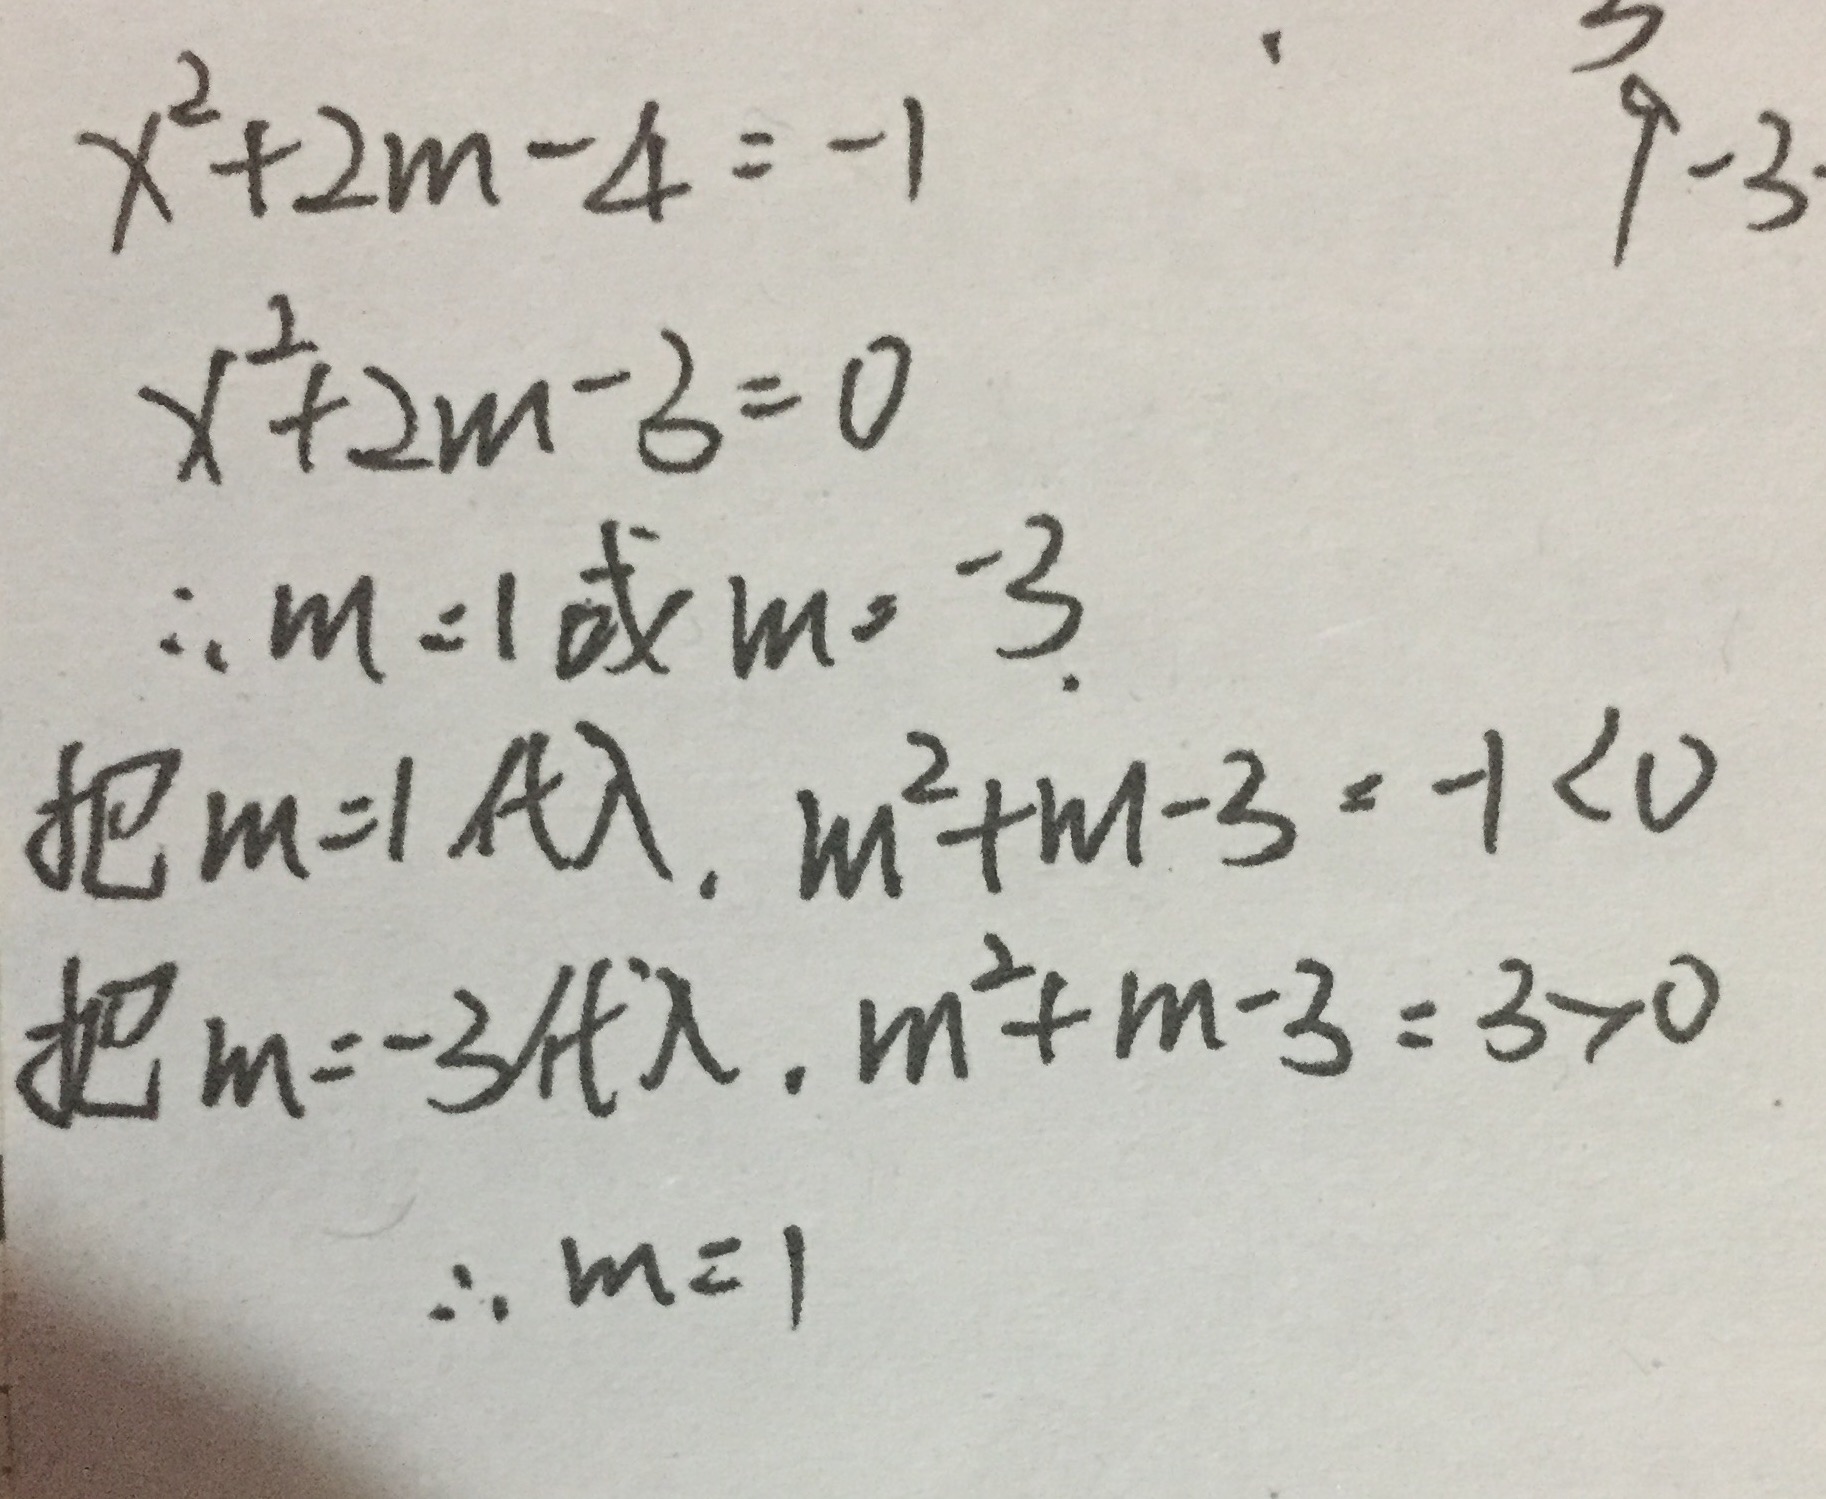 x²+2m-4=-1
x²+2m-3=0
∴m=1或m=-3.
把m=1代入. m²+m-3=-1<0
把m=-3代入. m²+m-3=3>0
∴m=1
-3